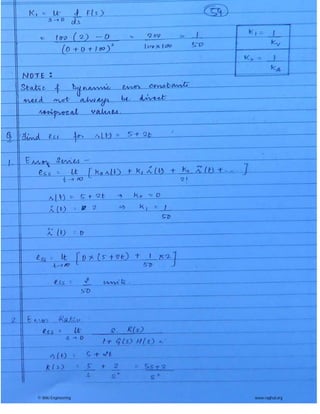 K₁ = lt d F(s)
s→0 ds
= 100 (2) - 0 = 200 = 1
(0+0+100)² 100×100 50
59
K₁ = 1
Kv
K₂ = 1
KA
NOTE :
Static & Dynamic error constants
need not always be direct
reciprocal values.
Q Find ess for r(t) = 5 + 2t
1. Error Series -
ess = lt [ K₀ r(t) + K₁ ṙ(t) + K₂ r̈(t) + ... ]
t→∞ 2!
r(t) = 5 + 2t → K₀ = 0
ṙ(t) = 2 ⇒ K₁ = 1
50
r̈(t) = 0
ess = lt [ 0 × (5+2t) + 1 × 2 ]
t→∞ 50
ess = 2 units.
50
2. Error Ratio
ess = lt S R(s)
s→0 1 + G(s) H(s)
r(t) = 5 + 2t
R(s) = 5 + 2 = 5s+2
s s² s²
© Wiki Engineering www.raghul.org